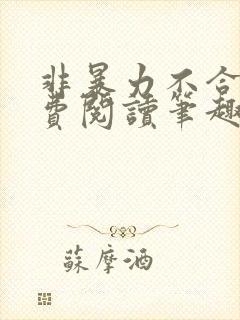 非暴力不合
費閱讀筆趣
蘇摩酒